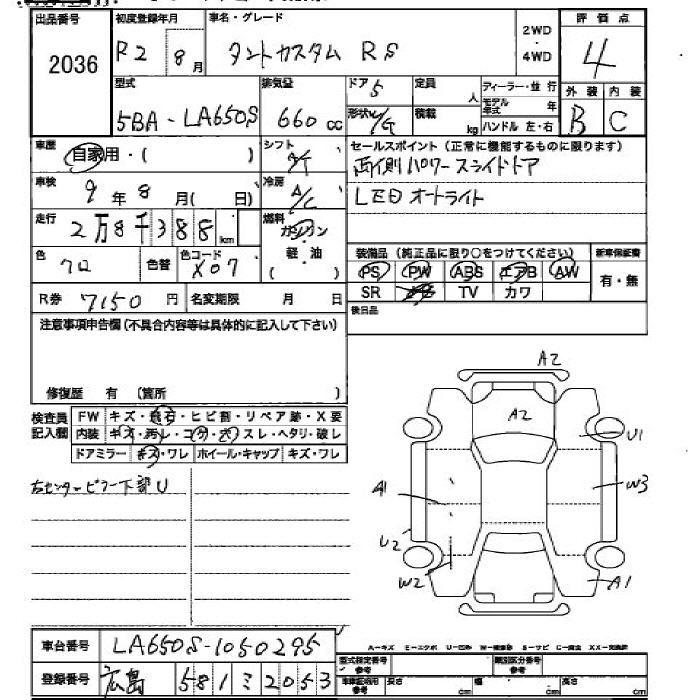 出品番号 2036
初度登録年月 R2 8月
車名・グレード タントカスタム RS
2WD・4WD
評価点 4
外装 B 内装 C
型式 5BA-LA650S
排気量 660cc
ドア 5 形状 /G
定員 人
積載 kg
ディーラー・並行
モデル年式 年
ハンドル 左・右
車歴 自家用・( )
シフト A/T
セールスポイント (正常に機能するものに限ります)
両側パワースライドドア
LEDオートライト
車検 9年 8月( 日)
冷房 A/C
走行 2万8千388km
燃料 ガソリン 軽・油 ( )
色 クロ 色替 色コード X07
装備品 (純正品に限り○をつけてください)
新車保証書 有・無
PS PW ABS エアB AW
SR TV カワ
R券 7150円 名変期限 月 日
後日品
注意事項申告欄(不具合内容等は具体的に記入して下さい)
修復歴 有 (箇所 )
検査員記入欄
FW キズ・飛石・ヒビ割・リペア跡・X要
内装 キズ・汚レ・コゲ・穴・スレ・ヘタリ・破レ
ドアミラー キズ・ワレ ホイール・キャップ キズ・ワレ
右センターピラー下部U
A2
A2
U1
A1
W3
U2
W2
A1
車台番号 LA650S-1050295
A-キズ E-エクボ U-凹み W-補修跡 S-サビ C-腐食 XX-交換済
登録番号 広島 581 ミ 2053
型式指定番号 参考
類別区分番号 参考
車体証明用 参考 長さ cm 幅 cm 高さ cm